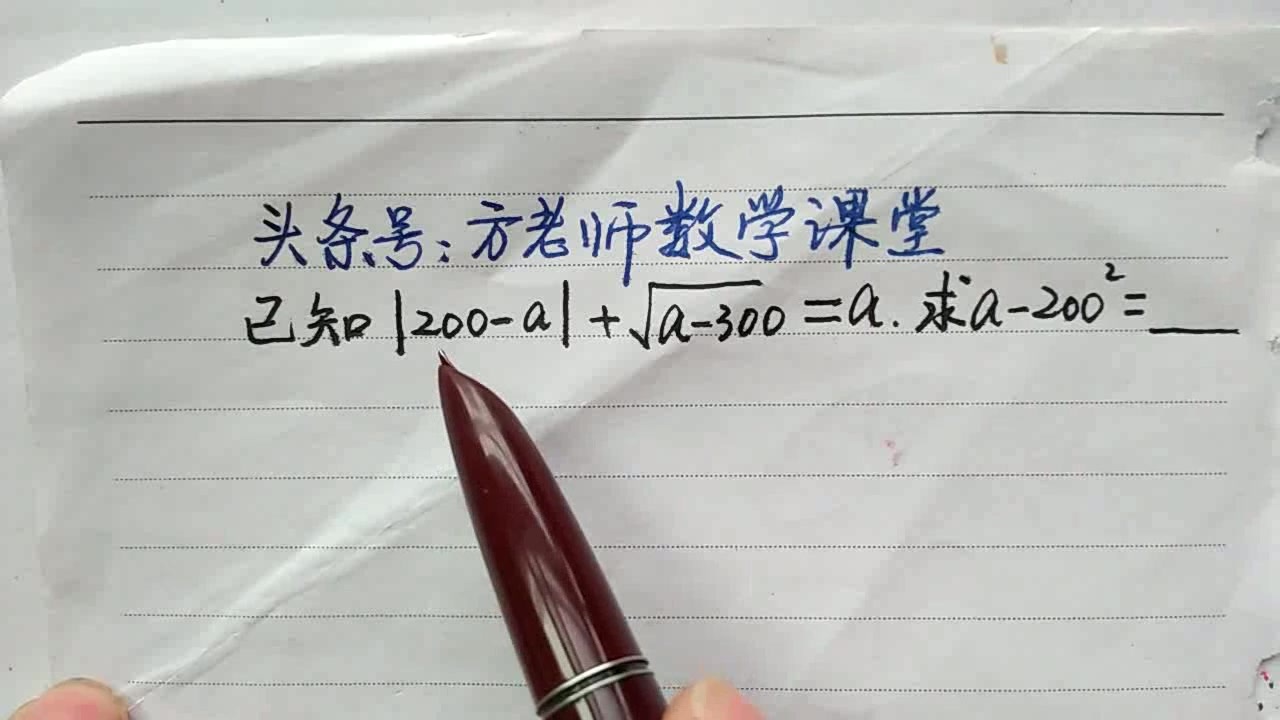 头条号:方老师数学课堂
已知|200-a|+√(a-300)=a.求a-200²=___